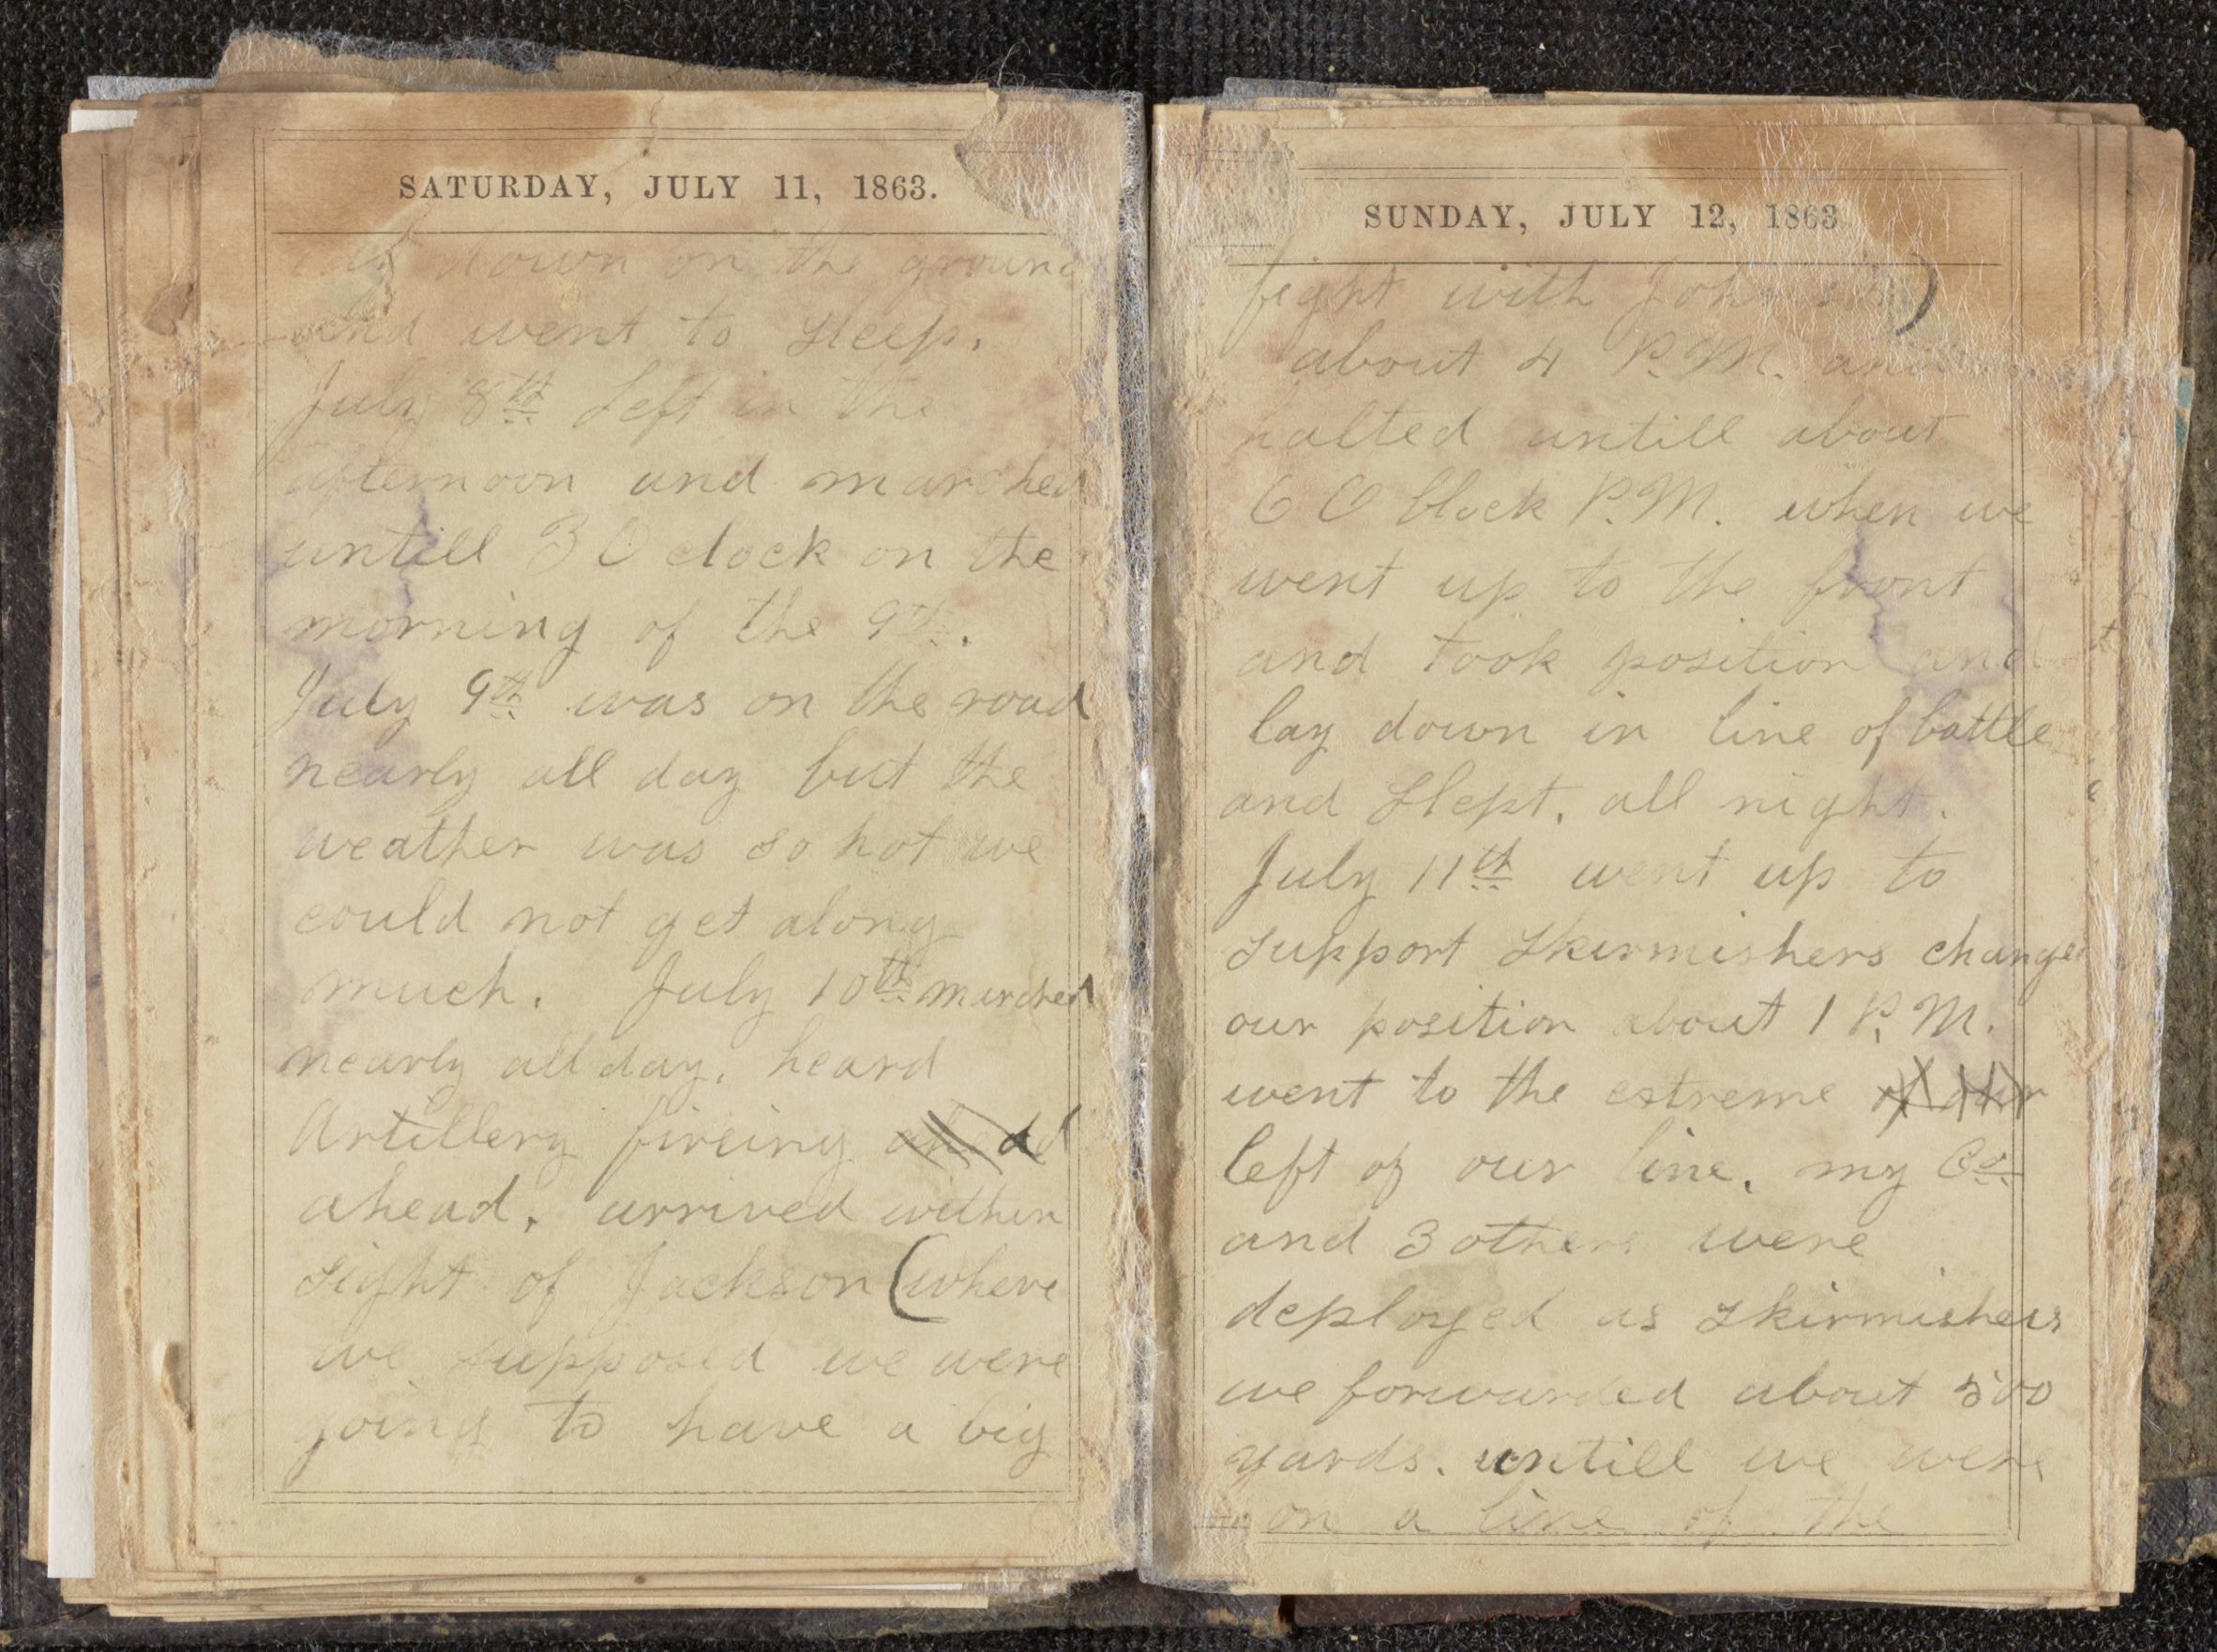 SATURDAY, JULY 11, 1863.
lay down on the ground
and went to sleep.
July 8th Left in the
afternoon and marched
untill 3 O clock on the
morning of the 9th.
July 9th was on the road
nearly all day but the
weather was so hot we
could not get along
much. July 10th marched
nearly all day. heard
Artillery fireing ahead
ahead. arrived within
sight of Jackson (where
we supposed we were
going to have a big
SUNDAY, JULY 12, 1863
fight with Johnston)
about 4 P.M. and
halted untill about
6 O Clock P.M. when we
went up to the front
and took position and
lay down in line of battle
and slept. all night.
July 11th went up to
support skirmishers change
our position about 1 P.M.
went to the extreme of our
left of our line. my Co.
and 3 others were
deployed as skirmishers
we forwarded about 500
yards. untill we were
on a line of the